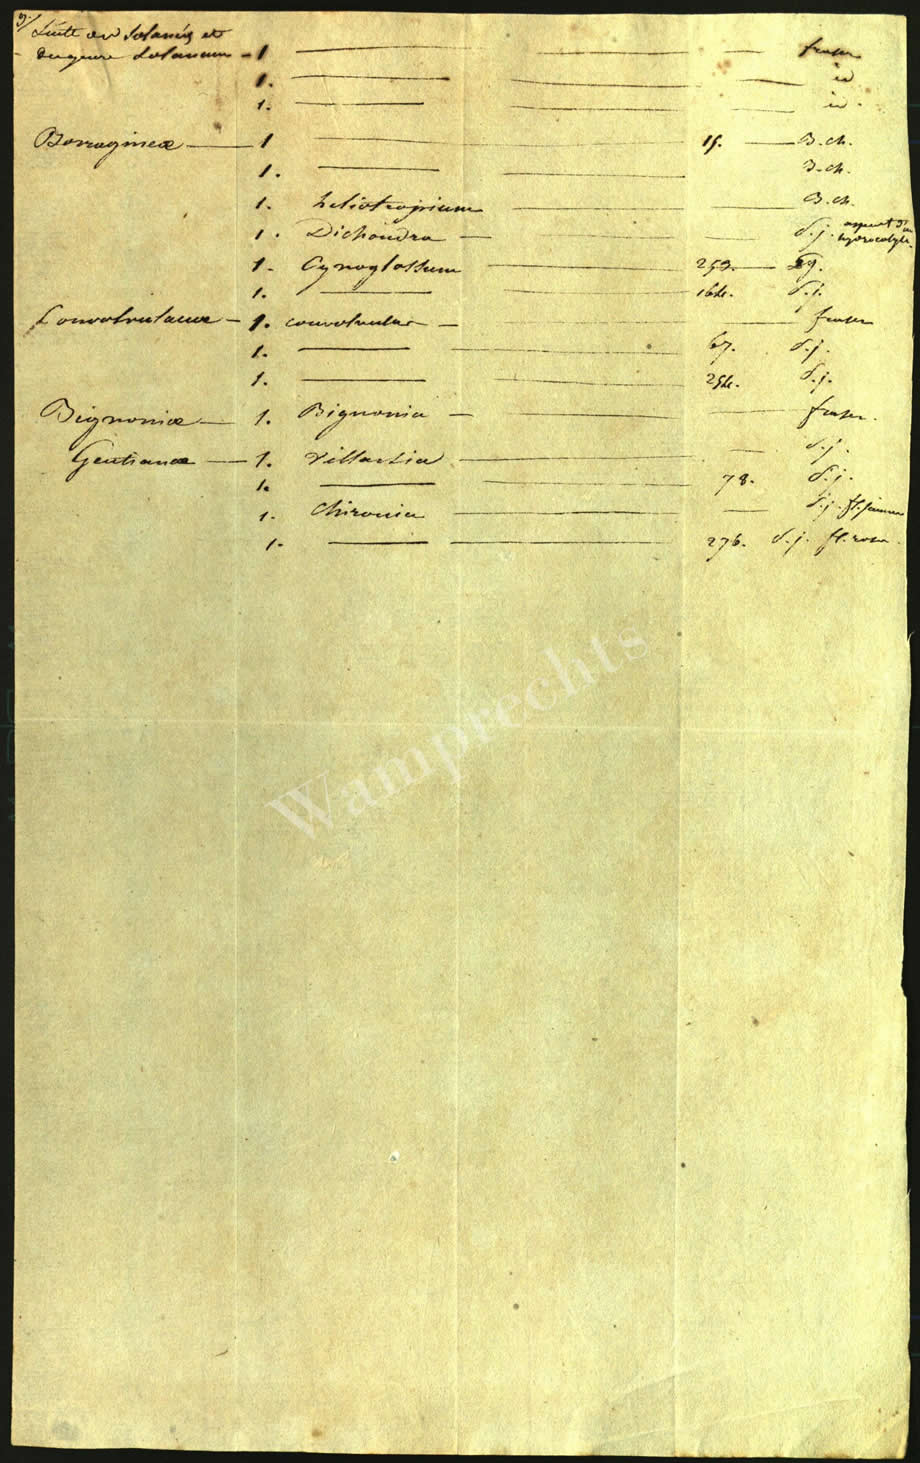 9./ Suite des Solanées et
du genre Solanum - 1 — — — fraser
1. — — — id
1. — — — id.
Borragineæ — 1 — 15. — B.ch.
1. — — B.ch.
1. heliotropium — — B.ch.
1. Dichondra — — S.j. aspect d'un hydrocotyle.
1. Cynoglossum — 259. —
1. — — 164. S.j.
Convolvulaceæ — 1. convolvulac — — fraser
1. — — 67. S.j.
1. — — 254. S.j.
Bignoniæ — 1. Bignonia — — fraser.
Gentianæ — 1. Villarsia — — S.j.
1. — — 78. S.j.
1. Chironia — — S.j. fl. jaunes
1. — — 276. S.j. fl. rose.
Wamprechts